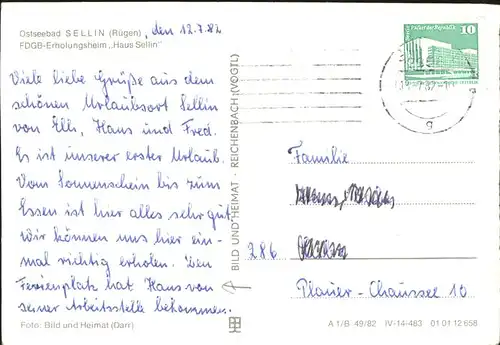 Ostseebad SELLIN (Rügen)
FDGB-Erholungsheim „Haus Sellin"
, den 12.7.82
Viele liebe Grüße aus dem
schönen Urlaubsort Sellin
von Elli, Hans und Fred.
Es ist unserer erster Urlaub.
Vom Sonnenschein bis zum
Essen ist hier alles sehr gut
Wir können uns hier ein-
mal richtig erholen. Den
Ferienplatz hat Hans von
seiner Arbeitsstelle bekommen.
Foto: Bild und Heimat (Darr)
BILD UND HEIMAT · REICHENBACH (VOGTL)
Palast der Republik
10
Familie
286
Plauer-Chaussee 10
A 1/B 49/82 IV-14-483 01 01 12 658